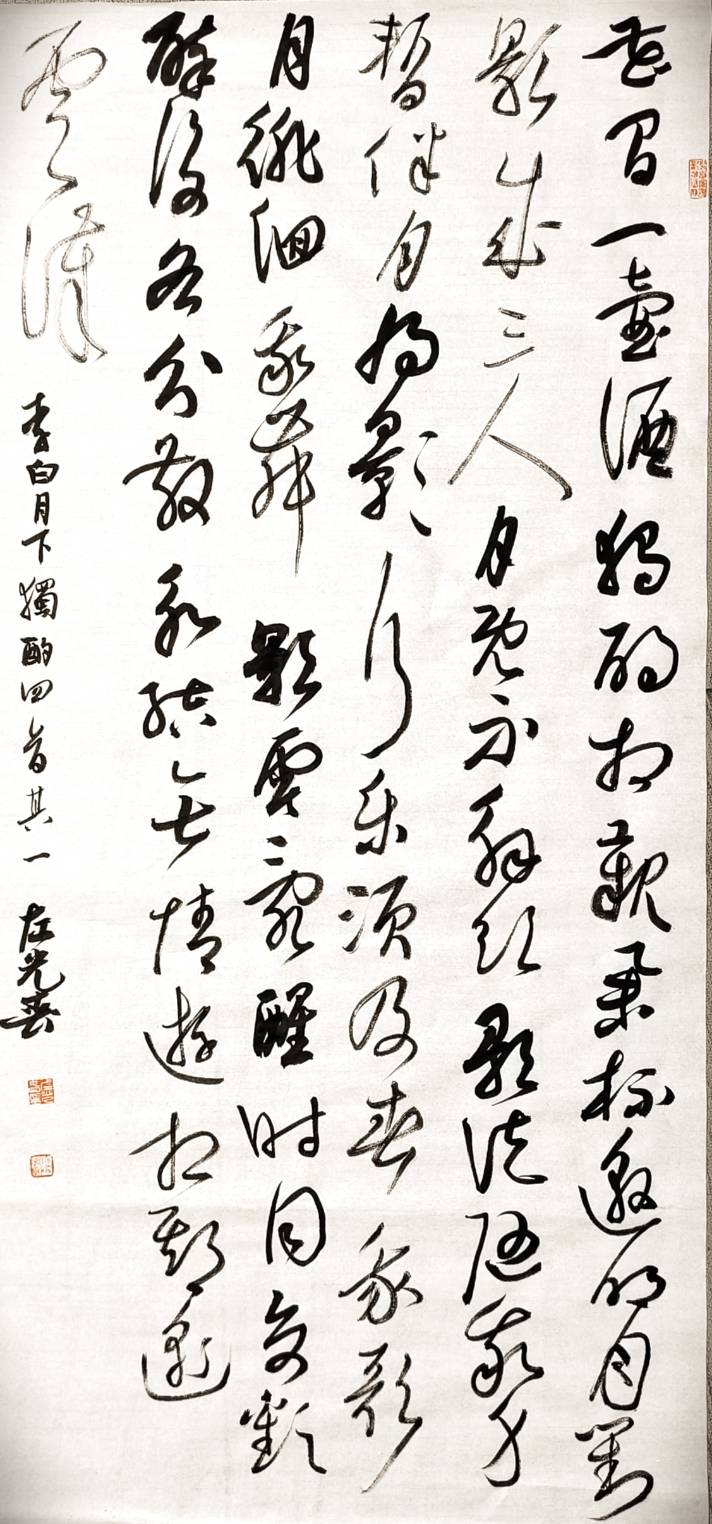 花間一壺酒獨酌相親舉杯邀明月對
影成三人月既不解飲影徒隨我身
暫伴月將影行樂須及春我歌
月徘徊我舞影零亂醒時同交歡
醉後各分散永結無情遊相期邈
雲漢
李白月下獨酌四首其一 左光